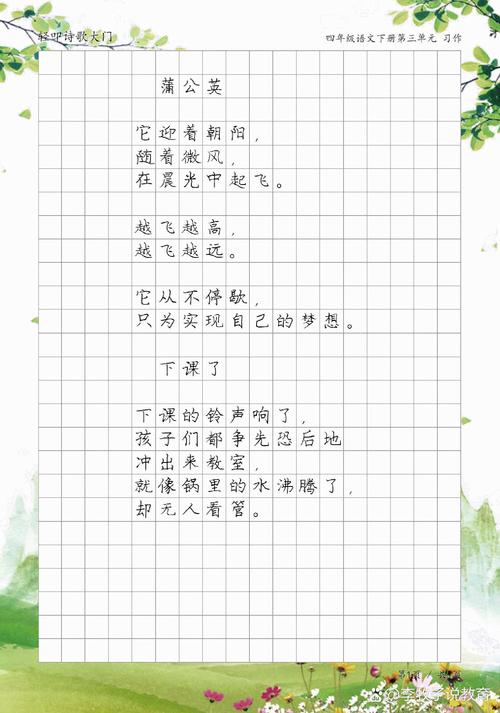 轻叩诗歌大门
四年级语文下册第三单元 习作
蒲公英
它迎着朝阳，
随着微风，
在晨光中起飞。
越飞越高，
越飞越远。
它从不停歇，
只为实现自己的梦想。
下课了
下课的铃声响了，
孩子们都争先恐后地
冲出来教室，
就像锅里的水沸腾了，
却无人看管。
李牧子说教育